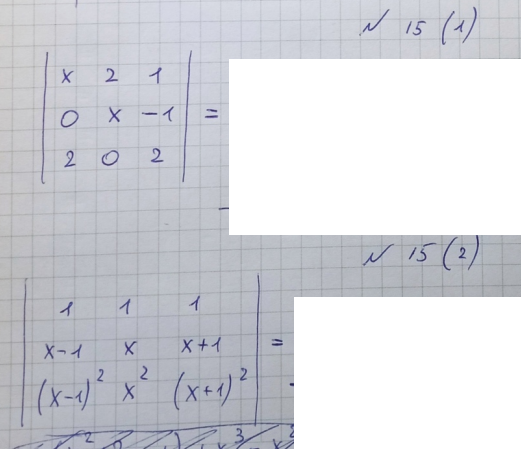 № 15 (1)
| x 2 1 |
| 0 x −1 | =
| 2 0 2 |
№ 15 (2)
| 1 1 1 |
| x−1 x x+1 | =
| (x−1)² x² (x+1)² |